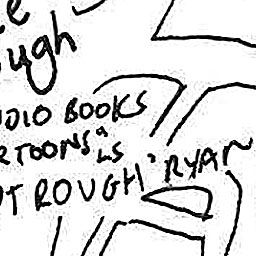 e
ugh
DIO BOOKS
RTOONS &
LS
T ROUGH" RYAN